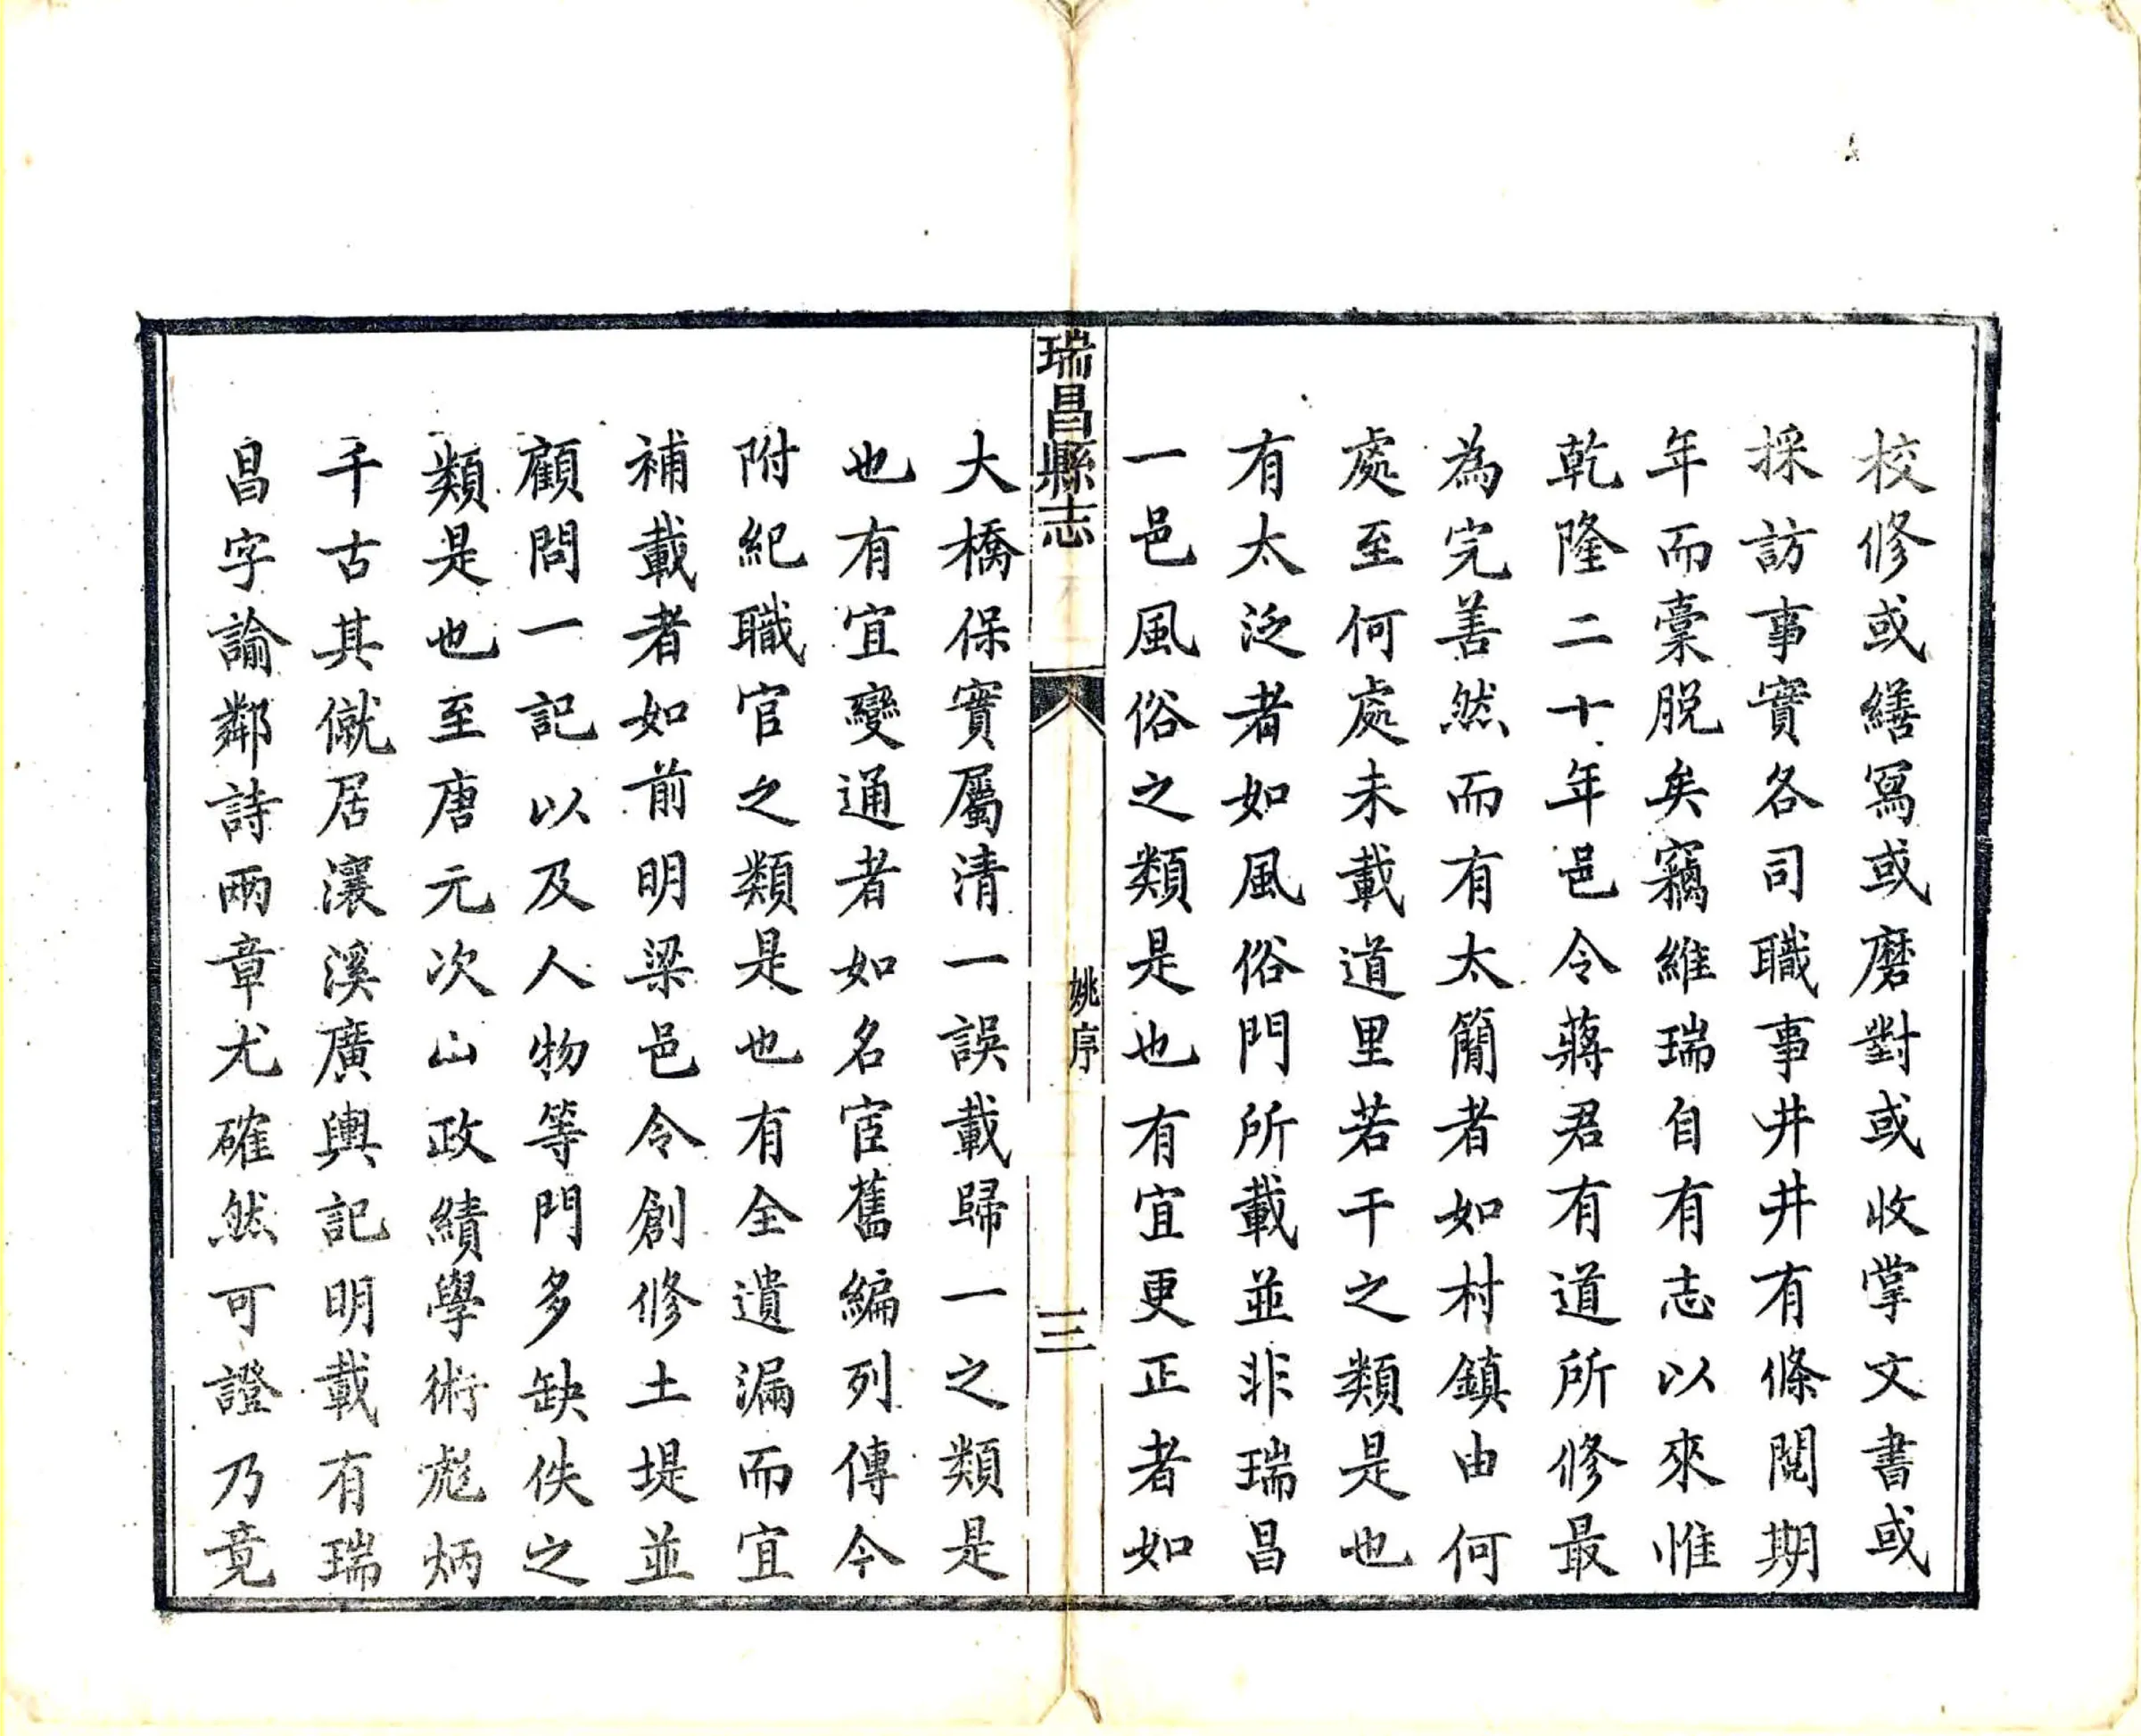 校修或繕寫或磨對或收掌文書或
採訪事實各司職事井井有條閱期
年而稾脫矣竊維瑞自有志以來惟
乾隆二十年邑令蔣君有道所修最
為完善然而有太簡者如村鎮由何
處至何處未載道里若干之類是也
有太泛者如風俗門所載並非瑞昌
一邑風俗之類是也有宜更正者如
瑞昌縣志
姚序
三
大橋保實屬清一誤載歸一之類是
也有宜變通者如名宦舊編列傳今
附紀職官之類是也有全遺漏而宜
補載者如前明梁邑令創修土堤並
顧問一記以及人物等門多缺佚之
類是也至唐元次山政績學術彪炳
千古其僦居瀼溪廣輿記明載有瑞
昌字諭鄰詩兩章尤確然可證乃竟